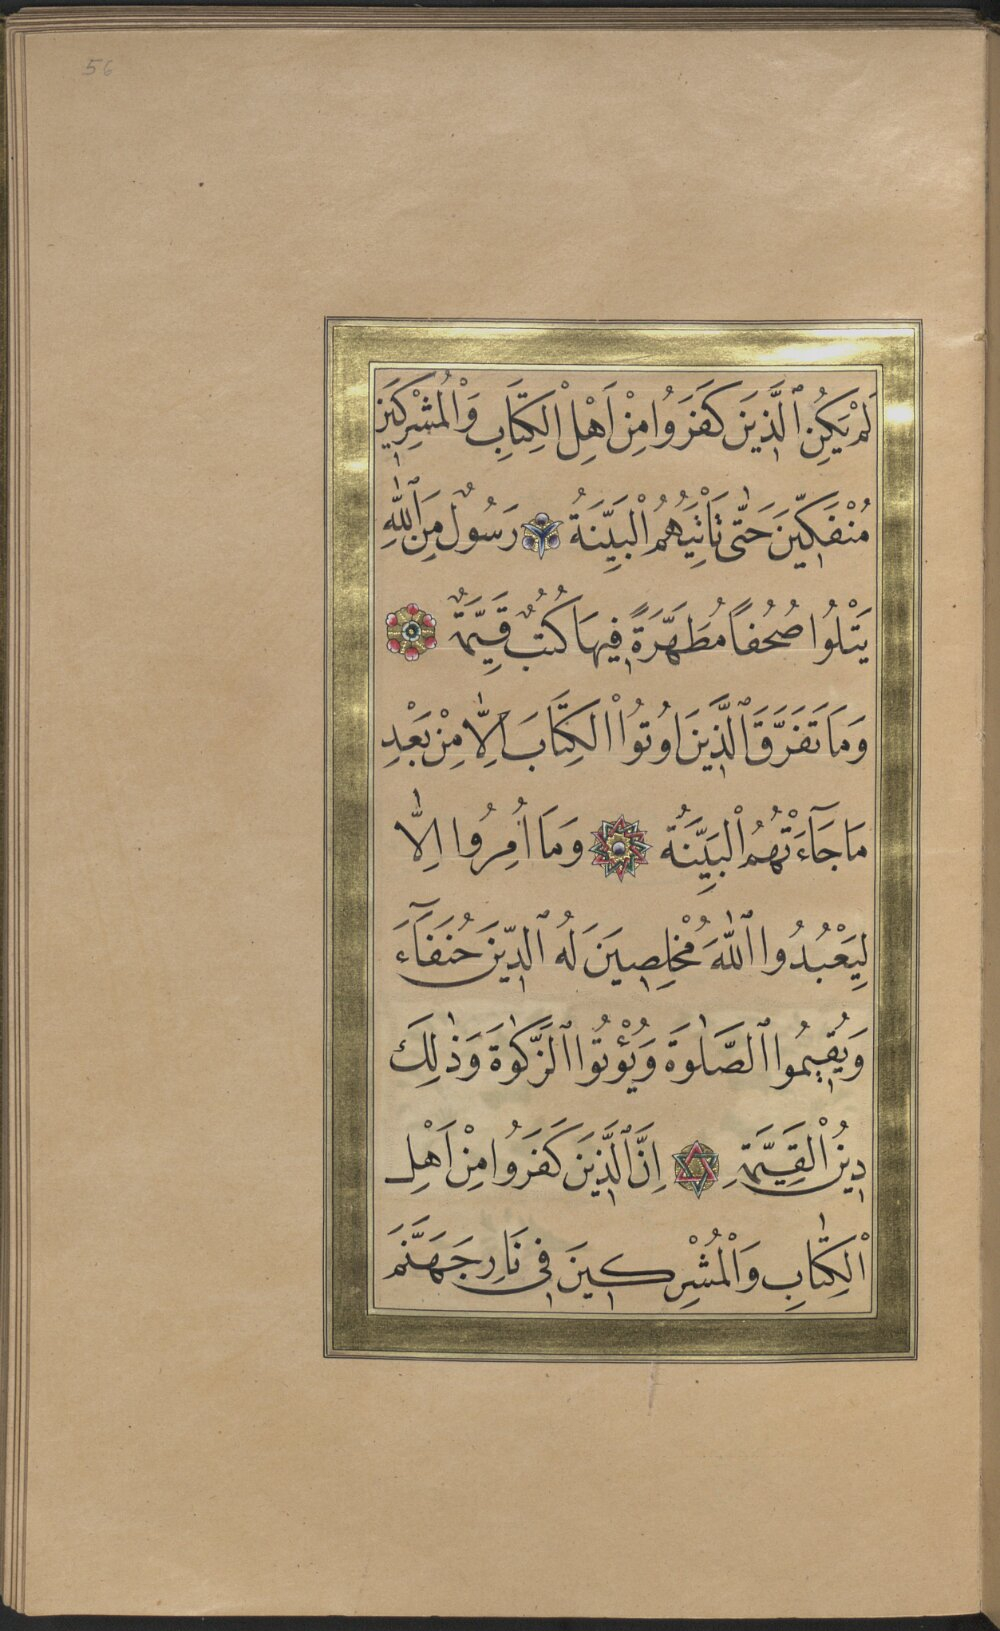 56
لَمْ يَكُنِ ٱلَّذِينَ كَفَرُوا مِنْ اَهْلِ ٱلْكِتَابِ وَٱلْمُشْرِكِينَ
مُنْفَكِّينَ حَتّٰى تَاْتِيَهُمُ ٱلْبَيِّنَةُ رَسُولٌ مِنَ ٱللّٰهِ
يَتْلُوا صُحُفًا مُطَهَّرَةً فِيهَا كُتُبٌ قَيِّمَةٌ
وَمَا تَفَرَّقَ ٱلَّذِينَ اُوتُوا ٱلْكِتَابَ اِلَّا مِنْ بَعْدِ
مَا جَآءَتْهُمُ ٱلْبَيِّنَةُ وَمَا اُمِرُوا اِلَّا
لِيَعْبُدُوا ٱللّٰهَ مُخْلِصِينَ لَهُ ٱلدِّينَ حُنَفَآءَ
وَيُقِيمُوا ٱلصَّلٰوةَ وَيُؤْتُوا ٱلزَّكٰوةَ وَذٰلِكَ
دِينُ ٱلْقَيِّمَةِ اِنَّ ٱلَّذِينَ كَفَرُوا مِنْ اَهْلِ
ٱلْكِتَابِ وَٱلْمُشْرِكِينَ فِى نَارِ جَهَنَّمَ